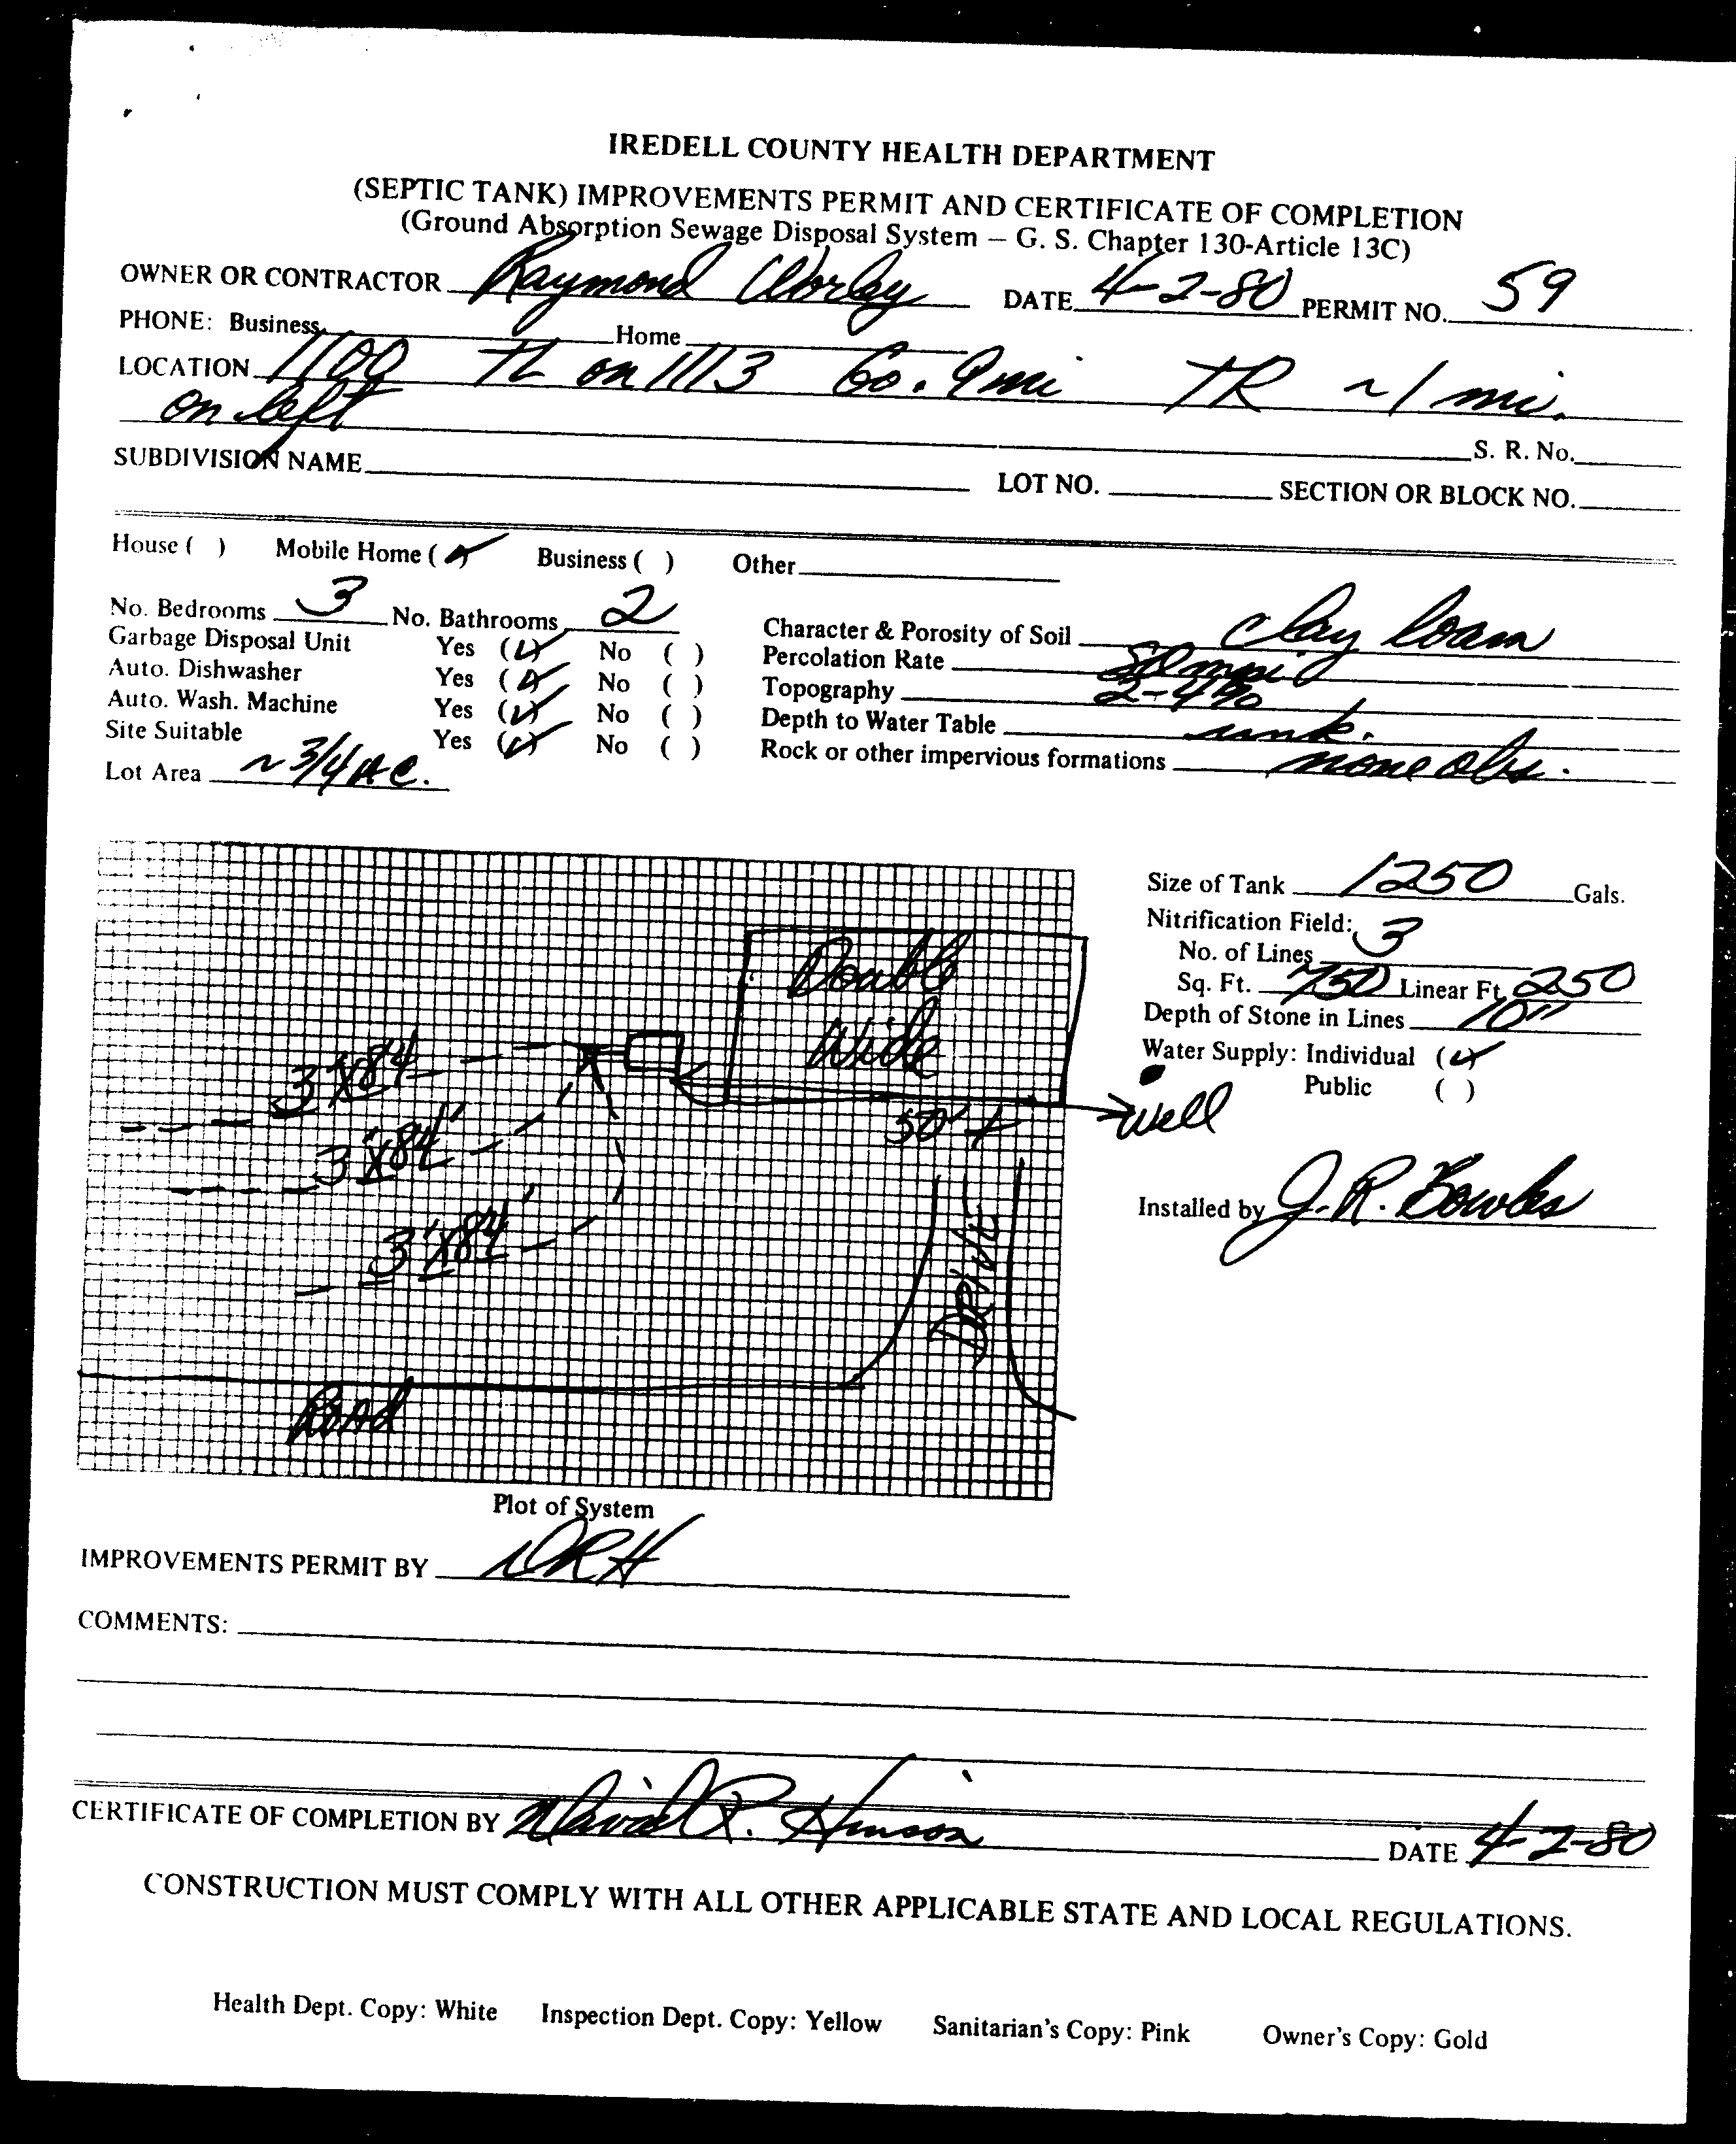 IREDELL COUNTY HEALTH DEPARTMENT
(SEPTIC TANK) IMPROVEMENTS PERMIT AND CERTIFICATE OF COMPLETION
(Ground Absorption Sewage Disposal System – G. S. Chapter 130-Article 13C)
OWNER OR CONTRACTOR Raymond Worley DATE 4-2-80 PERMIT NO. 59
PHONE: Business Home
LOCATION 1100 TL on 1113 Go .9 mi TR ~1 mi.
on left
S. R. No.
SUBDIVISION NAME LOT NO. SECTION OR BLOCK NO.
House ( ) Mobile Home (✓) Business ( ) Other
No. Bedrooms 3 No. Bathrooms 2
Garbage Disposal Unit Yes (✓) No ( )
Auto. Dishwasher Yes (✓) No ( )
Auto. Wash. Machine Yes (✓) No ( )
Site Suitable Yes (✓) No ( )
Lot Area ~3/4 AC.
Character & Porosity of Soil clay loam
Percolation Rate mpi
Topography 2-4%
Depth to Water Table unk.
Rock or other impervious formations none obs.
Double
Wide
3'x84'
3'x84'
3'x84'
50'+
Drive
Road
Well
Size of Tank 1250 Gals.
Nitrification Field:
No. of Lines 3
Sq. Ft. 750 Linear Ft. 250
Depth of Stone in Lines 10"
Water Supply: Individual (✓)
Public ( )
Installed by J.R. Bowles
Plot of System
IMPROVEMENTS PERMIT BY DRH
COMMENTS:
CERTIFICATE OF COMPLETION BY David R. Hinson DATE 4-2-80
CONSTRUCTION MUST COMPLY WITH ALL OTHER APPLICABLE STATE AND LOCAL REGULATIONS.
Health Dept. Copy: White Inspection Dept. Copy: Yellow Sanitarian's Copy: Pink Owner's Copy: Gold